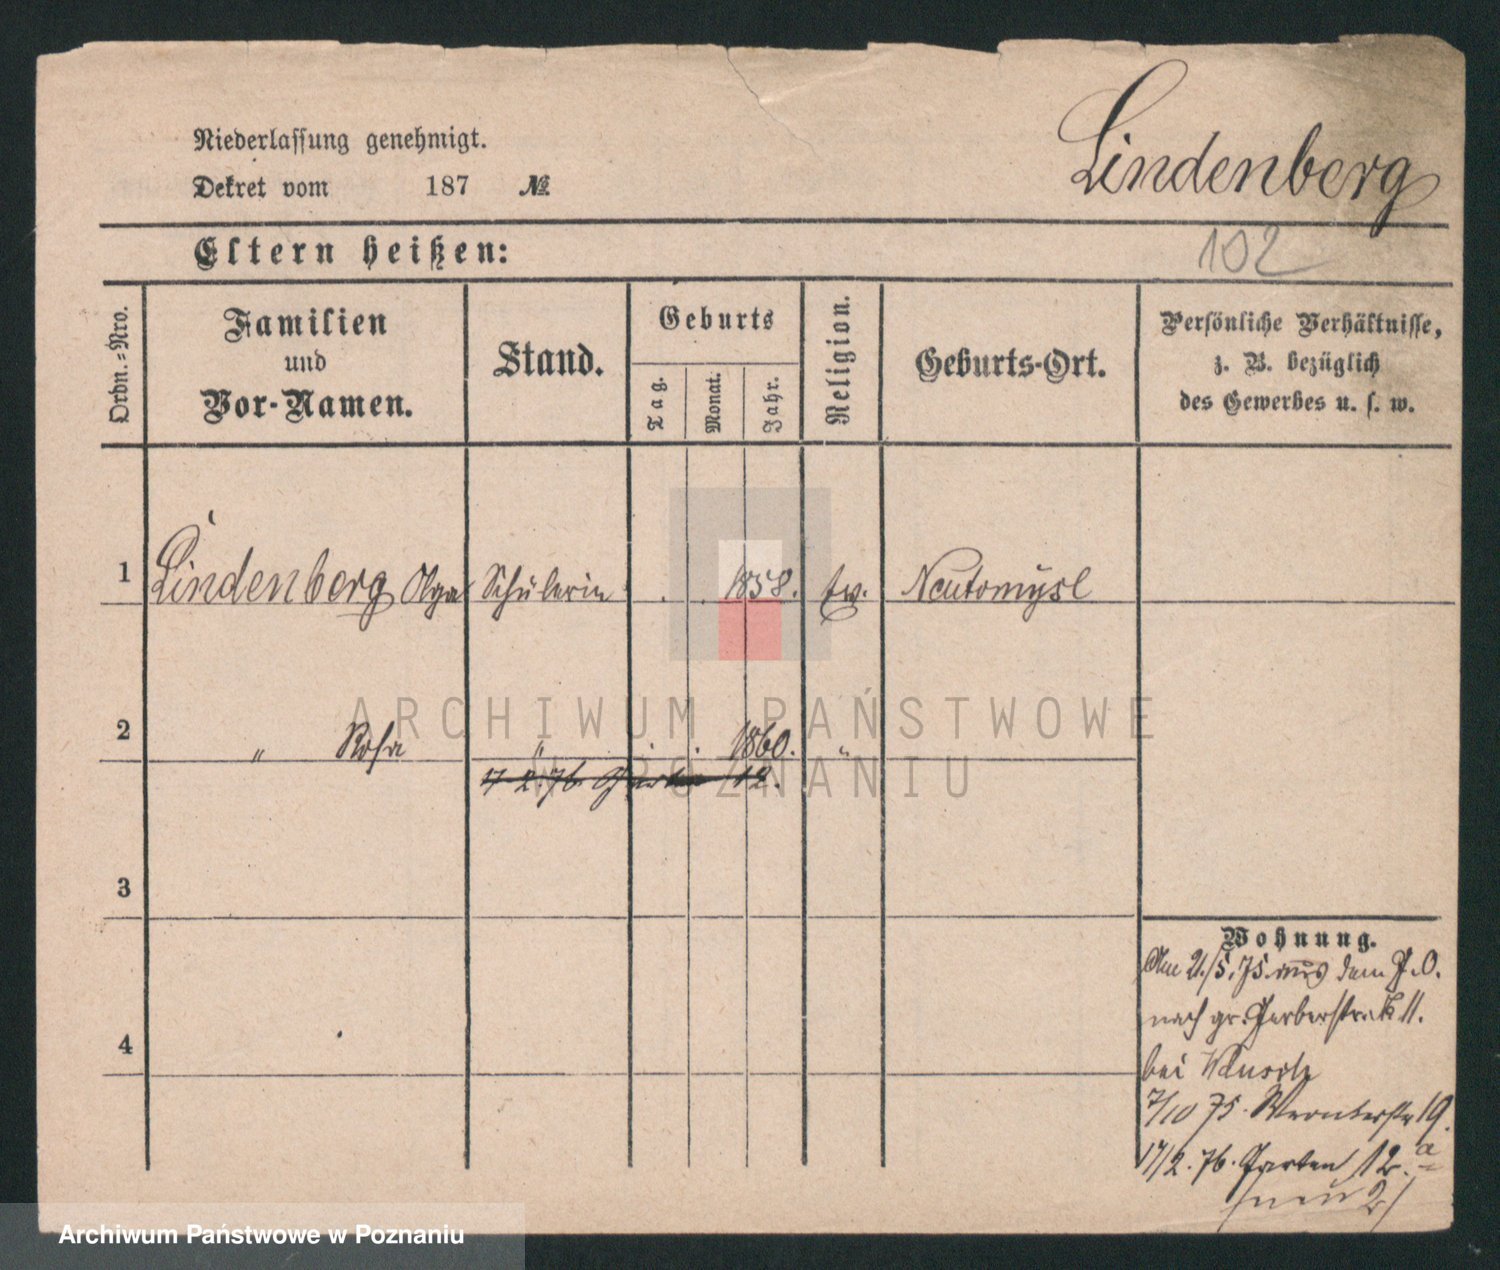 Lindenberg
Niederlassung genehmigt.
Dekret vom 187 №
102
Eltern heißen:
Ordn.-Nro.
Familien
und
Vor-Namen.
Stand.
Geburts
Tag.
Monat.
Jahr.
Religion.
Geburts-Ort.
Persönliche Verhältnisse,
z. B. bezüglich
des Gewerbes u. s. w.
1 Lindenberg Olga Schülerin . . 1858. ev. Neutomysl
2 " Rosa " . . 1860. "
17.2.76. Garten 12.
3
4
Wohnung.
Am 21./5.75. aus dem P.O.
nach gr. Gerberstr. 11.
bei
7/10 75. 19.
17/2.76. Garten 12.a
/neu 2/
ARCHIWUM PAŃSTWOWE
W POZNANIU
Archiwum Państwowe w Poznaniu